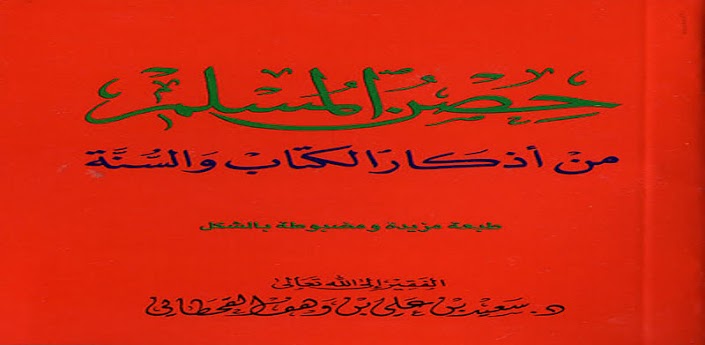 حِصْنُ المُسْلِم
مِنْ أذكَارِ الكِتَابِ وَالسُّنَّة
طبعة مزيدة ومضبوطة بالشكل
الفَقِيرُ إِلَى اللهِ تَعَالَى
د. سَعِيد بن عَلِي بن وَهف القَحطَانِي